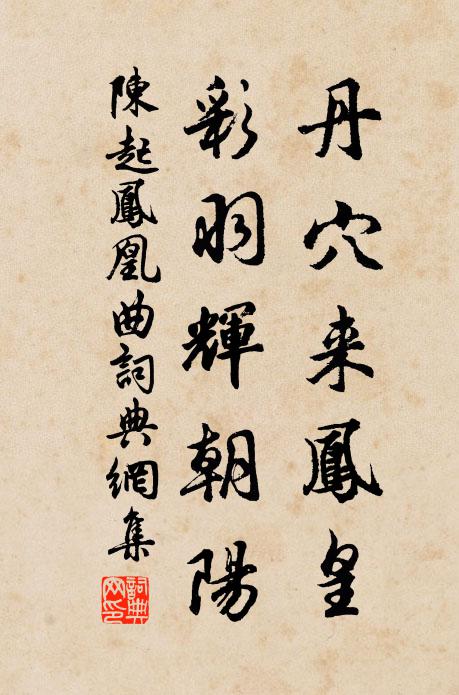 丹穴来鳳皇
彩羽輝朝陽
陳起鳳凰曲詞典網集
詞典網印